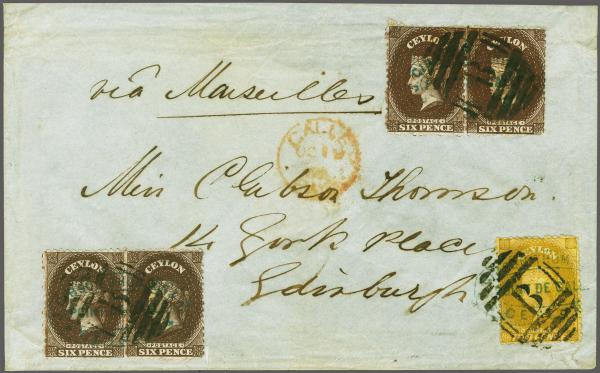 CEYLON CEYLON
POSTAGE POSTAGE
SIX PENCE SIX PENCE
B
via Marseilles
GALLE
Miss Clabson Thomson.
14 York Place
Edinburgh
CEYLON CEYLON
POSTAGE POSTAGE
SIX PENCE SIX PENCE
B
CEYLON
B
DE